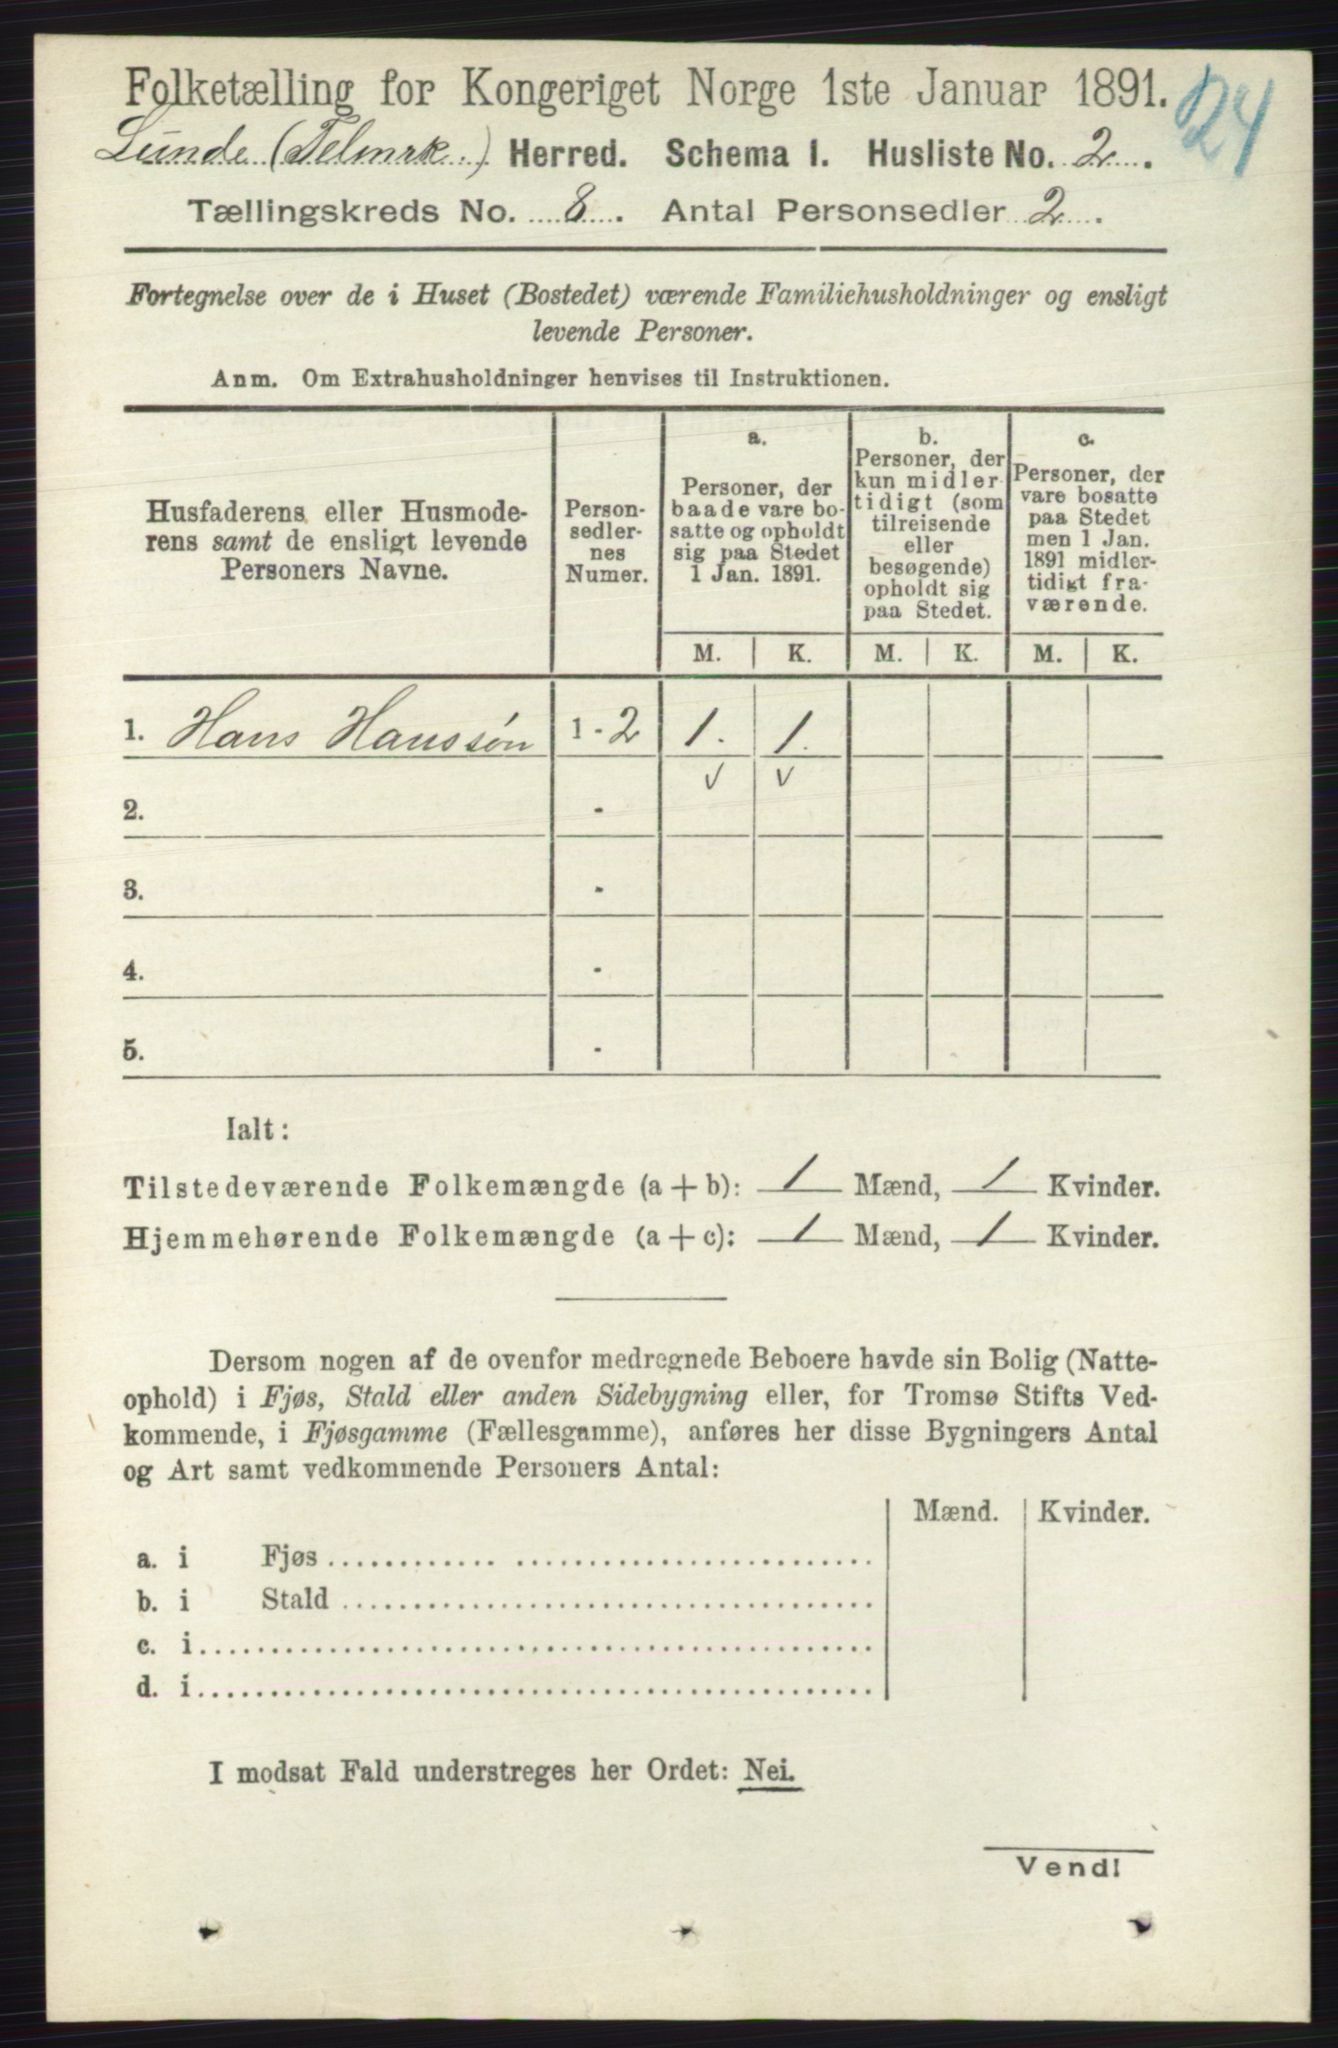 Folketælling for Kongeriget Norge 1ste Januar 1891.
24
Lunde (Telmrk.) Herred. Schema I. Husliste No. 2.
Tællingskreds No. 8. Antal Personsedler 2.
Fortegnelse over de i Huset (Bostedet) værende Familiehusholdninger og ensligt
levende Personer.
Anm. Om Extrahusholdninger henvises til Instruktionen.
Husfaderens eller Husmode-
rens samt de ensligt levende
Personers Navne.
Person-
sedler-
nes
Numer.
a.
Personer, der
baade vare bo-
satte og opholdt
sig paa Stedet
1 Jan. 1891.
b.
Personer, der
kun midler-
tidigt (som
tilreisende
eller
besøgende)
opholdt sig
paa Stedet.
c.
Personer, der
vare bosatte
paa Stedet
men 1 Jan.
1891 midler-
tidigt fra-
værende.
M. K. M. K. M. K.
1. Hans Hanssøn 1 - 2 1. 1.
v v
2. -
3. -
4. -
5. -
Ialt:
Tilstedeværende Folkemængde (a + b): 1 Mænd, 1 Kvinder.
Hjemmehørende Folkemængde (a + c): 1 Mænd, 1 Kvinder.
Dersom nogen af de ovenfor medregnede Beboere havde sin Bolig (Natte-
ophold) i Fjøs, Stald eller anden Sidebygning eller, for Tromsø Stifts Ved-
kommende, i Fjøsgamme (Fællesgamme), anføres her disse Bygningers Antal
og Art samt vedkommende Personers Antal:
Mænd. Kvinder.
a. i Fjøs
b. i Stald
c. i
d. i
I modsat Fald understreges her Ordet: Nei.
Vend!